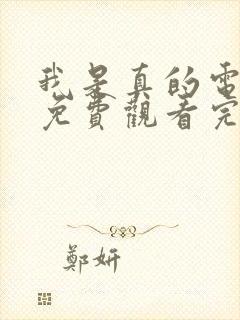 我是真的電
免費觀看完
鄭妍